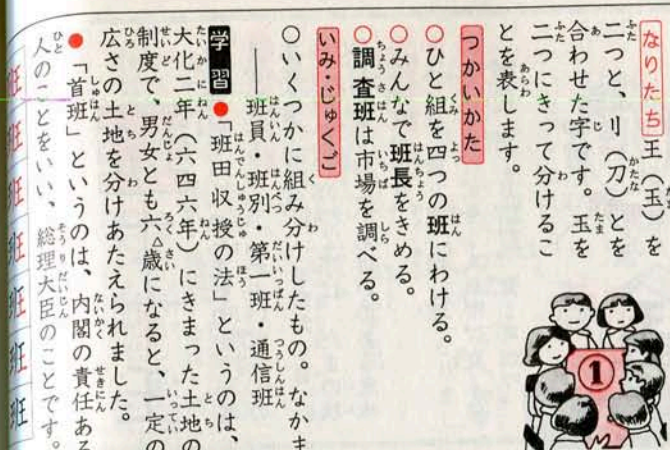 なりたち 王(玉)を
二つと、刂(刀)とを
合わせた字です。玉を
二つにきって分けるこ
とを表します。
つかいかた
○ひと組を四つの班にわける。
○みんなで班長をきめる。
○調査班は市場を調べる。
いみ・じゅくご
○いくつかに組み分けしたもの。なかま
――班員・班別・第一班・通信班
学習 ●「班田収授の法」というのは、
大化二年(六四六年)にきまった土地の
制度で、男女とも六歳になると、一定の
広さの土地を分けあたえられました。
●「首班」というのは、内閣の責任ある
人のことをいい、総理大臣のことです。
①